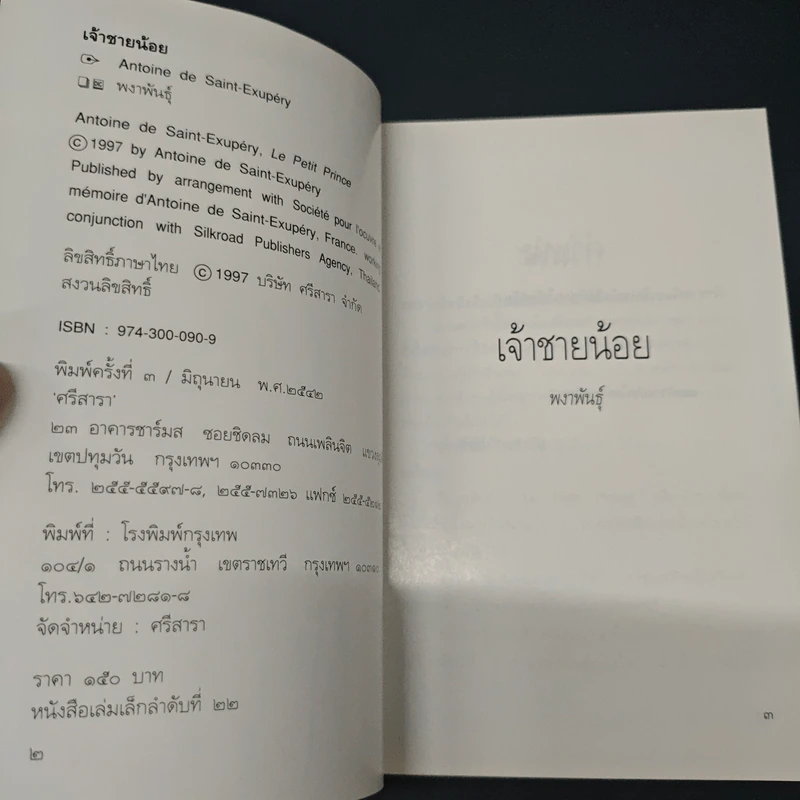 เจ้าชายน้อย
Antoine de Saint-Exupéry
พงาพันธุ์
Antoine de Saint-Exupéry, Le Petit Prince
© 1997 by Antoine de Saint-Exupéry
Published by arrangement with Société pour l'oeuvre
mémoire d'Antoine de Saint-Exupéry, France, working
conjunction with Silkroad Publishers Agency, Thailand
ลิขสิทธิ์ภาษาไทย © 1997 บริษัท ศรีสารา จำกัด
สงวนลิขสิทธิ์
ISBN : 974-300-090-9
พิมพ์ครั้งที่ ๓ / มิถุนายน พ.ศ.๒๕๔๒
'ศรีสารา'
๒๓ อาคารชาร์มส ซอยชิดลม ถนนเพลินจิต
เขตปทุมวัน กรุงเทพฯ ๑๐๓๓๐
โทร. ๒๕๕-๕๕๙๗-๘, ๒๕๕-๗๓๒๖ แฟกซ์
พิมพ์ที่ : โรงพิมพ์กรุงเทพ
๑๐๔/๑ ถนนรางน้ำ เขตราชเทวี กรุงเทพฯ
โทร.๖๔๒-๗๒๘๑-๘
จัดจำหน่าย : ศรีสารา
ราคา ๑๕๐ บาท
หนังสือเล่มเล็กลำดับที่ ๒๒
๒
เจ้าชายน้อย
พงาพันธุ์
๓